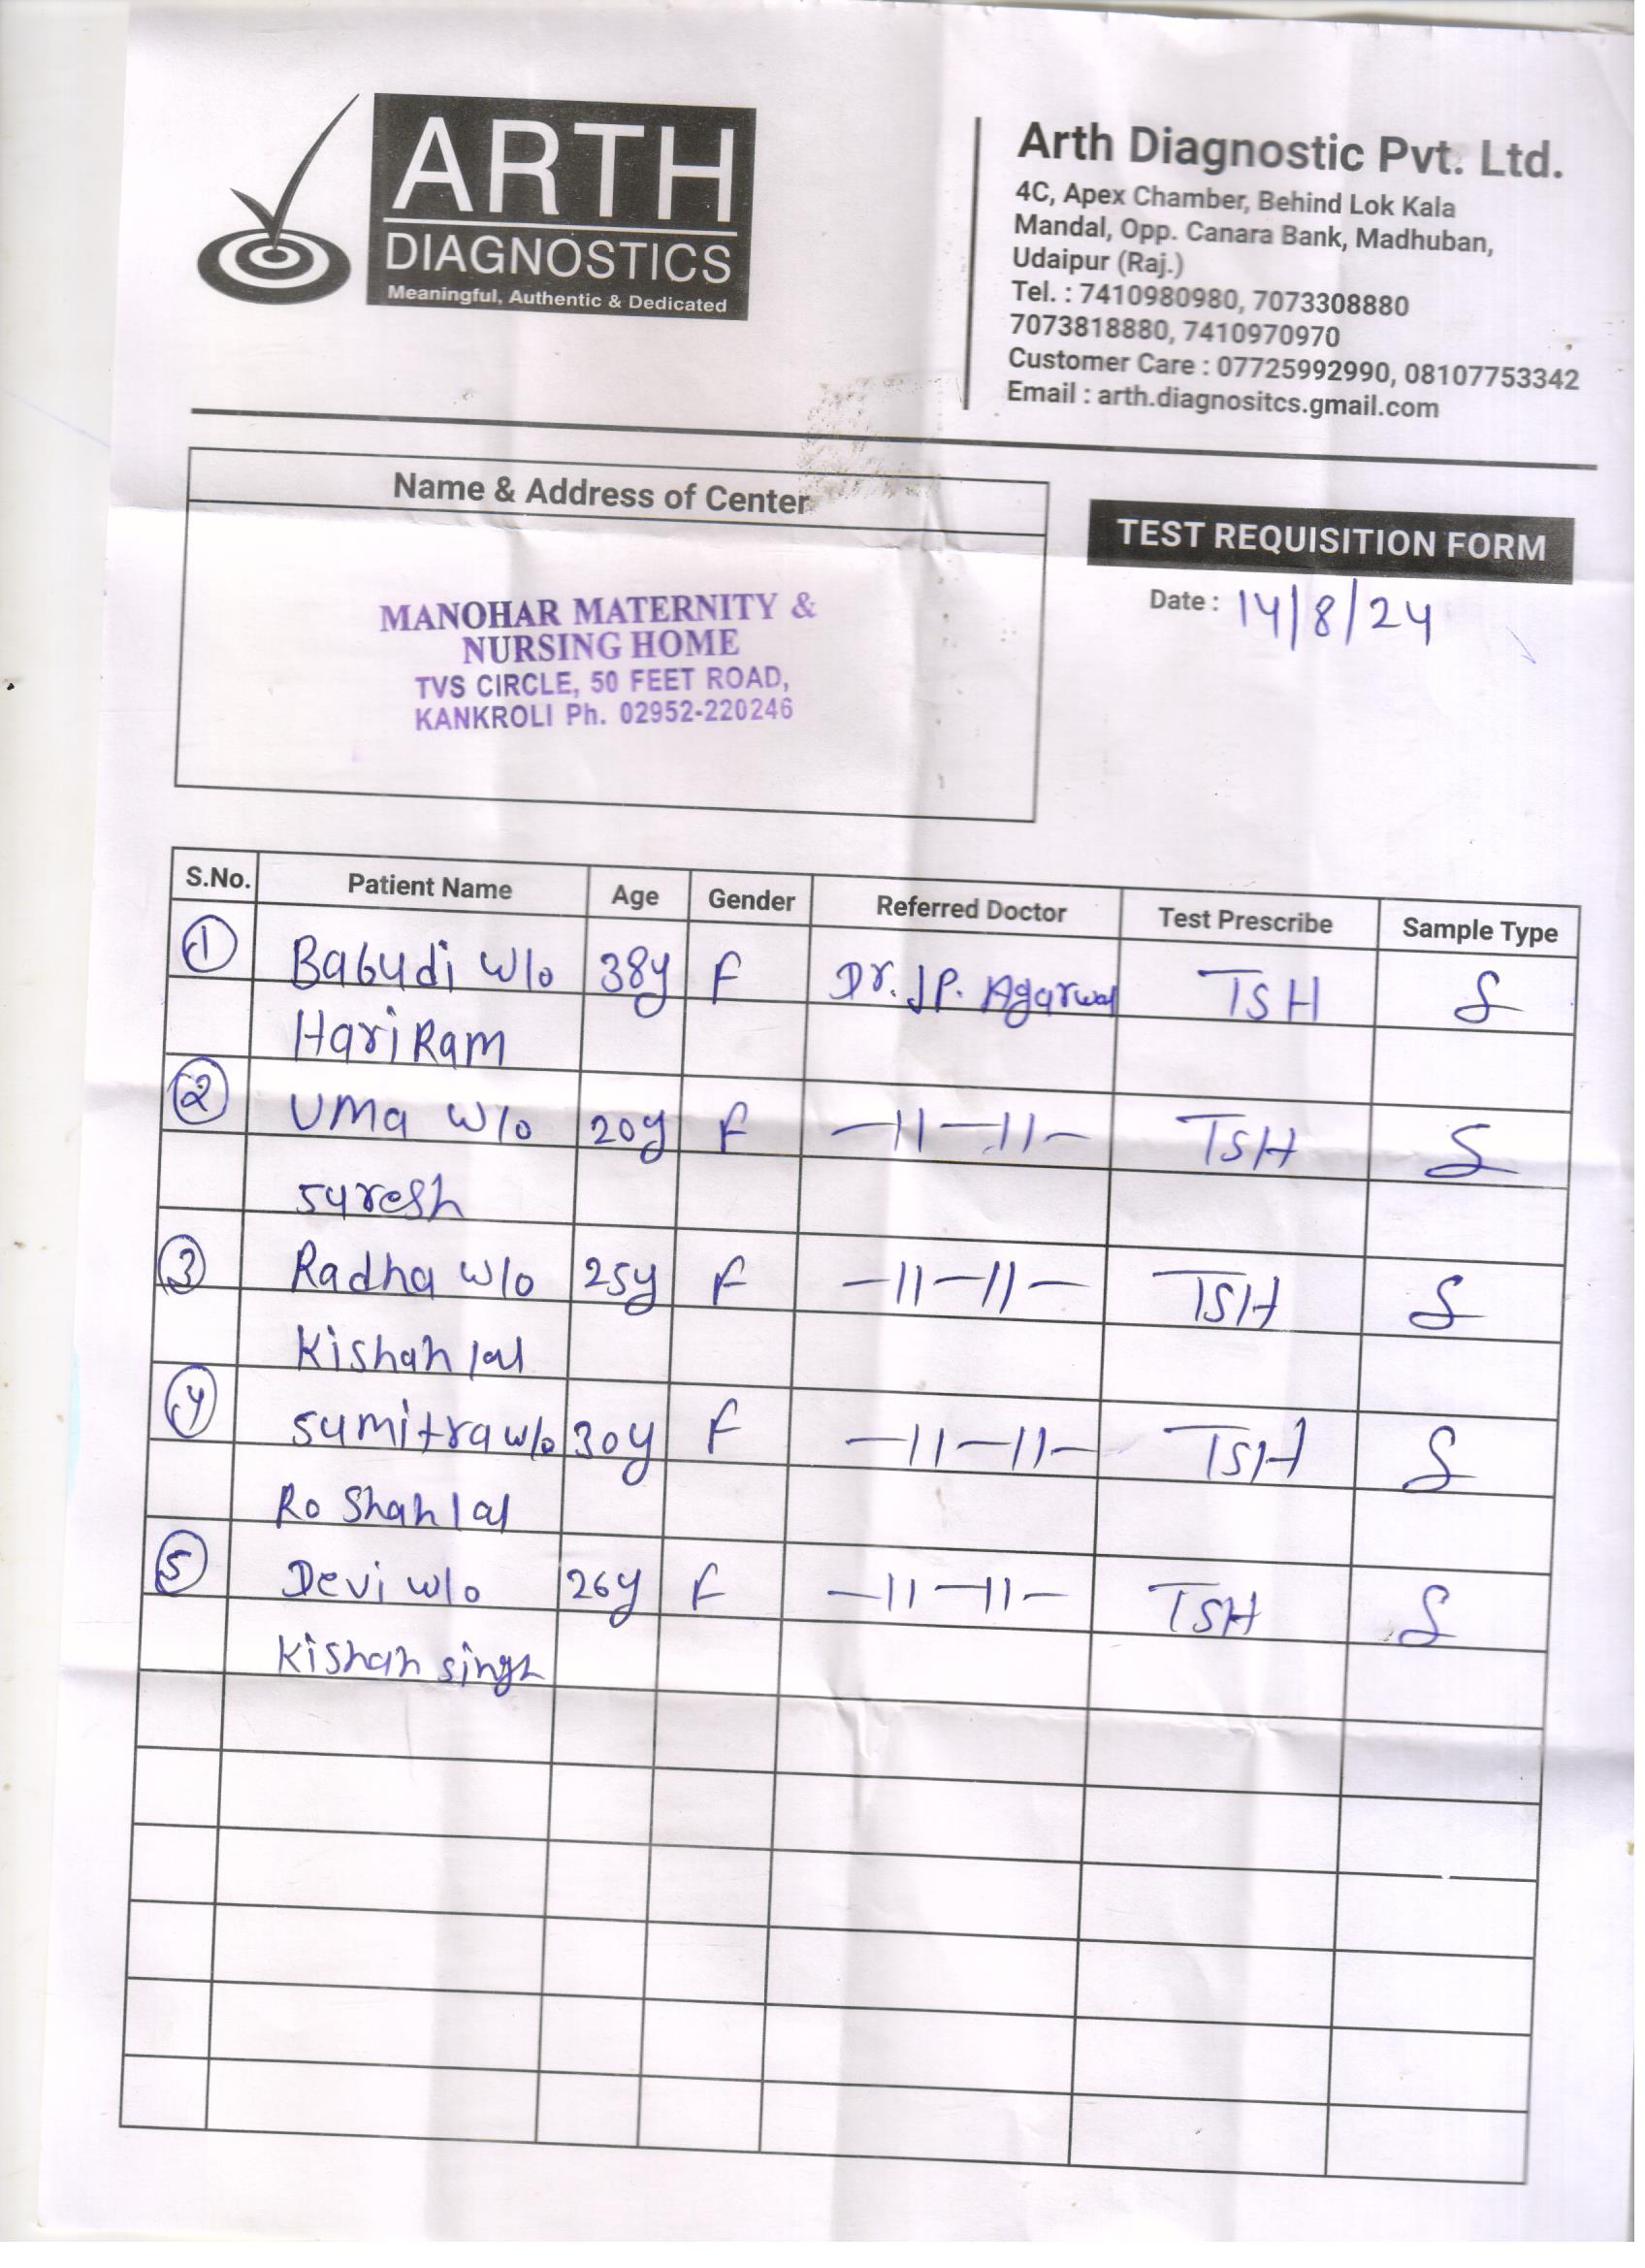 ARTH
DIAGNOSTICS
Meaningful, Authentic & Dedicated
Arth Diagnostic Pvt. Ltd.
4C, Apex Chamber, Behind Lok Kala
Mandal, Opp. Canara Bank, Madhuban,
Udaipur (Raj.)
Tel. : 7410980980, 7073308880
7073818880, 7410970970
Customer Care : 07725992990, 08107753342
Email : arth.diagnositcs.gmail.com
Name & Address of Center
MANOHAR MATERNITY &
NURSING HOME
TVS CIRCLE, 50 FEET ROAD,
KANKROLI Ph. 02952-220246
TEST REQUISITION FORM
Date : 14/8/24
S.No. Patient Name Age Gender Referred Doctor Test Prescribe Sample Type
1 Babudi w/o 38y F Dr. J.P. Agarwal TSH S
Hari Ram
2 Uma w/o 20y F —11—11— TSH S
suresh
3 Radha w/o 25y F —11—11— TSH S
Kishan lal
4 sumitra w/o 30y F —11—11— TSH S
Roshan lal
5 Devi w/o 26y F —11—11— TSH S
Kishan singh